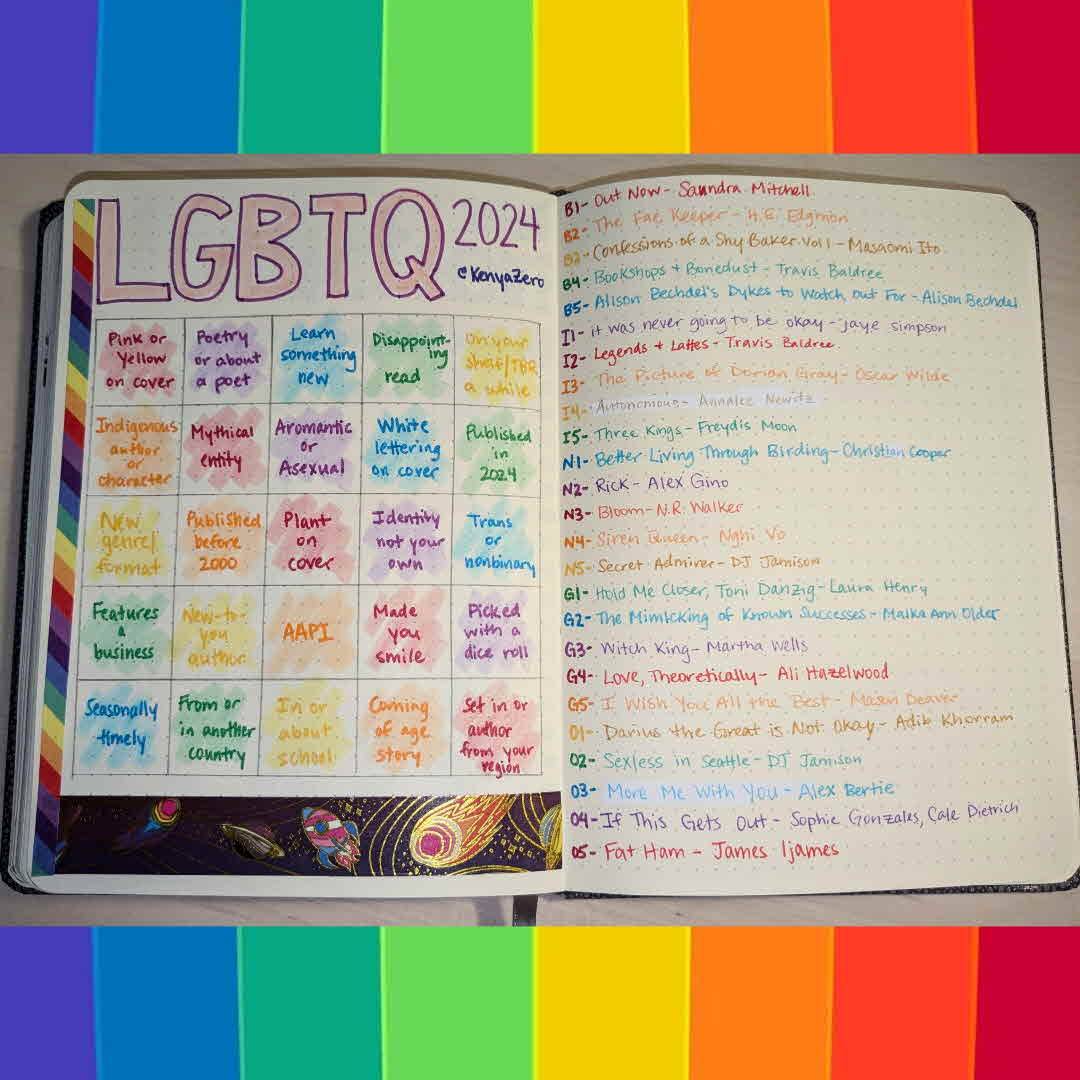 LGBTQ 2024
@KenyaZero
Pink or
Yellow
on cover
Poetry
or about
a poet
Learn
something
new
Disappoint-
ing
read
On your
shelf/TBR
a while
Indigenous
author
or
character
Mythical
entity
Aromantic
or
Asexual
White
lettering
on cover
Published
in
2024
New
genre/
format
Published
before
2000
Plant
on
cover
Identity
not your
own
Trans
or
nonbinary
Features
a
business
New-to-
you
author
AAPI
Made
you
smile
Picked
with a
dice roll
Seasonally
timely
From or
in another
country
In or
about
school
Coming
of age
story
Set in or
author
from your
region
B1- Out Now- Saundra Mitchell
B2- The Fae Keeper- H.E. Edgmon
B3- Confessions of a Shy Baker Vol 1- Masaomi Ito
B4- Bookshops + Bonedust- Travis Baldree
B5- Alison Bechdel's Dykes to Watch out For- Alison Bechdel
I1- it was never going to be okay- jaye simpson
I2- Legends + Lattes- Travis Baldree
I3- The Picture of Dorian Gray- Oscar Wilde
I4- Autonomous- Annalee Newitz
I5- Three Kings- Freydis Moon
N1- Better Living Through Birding- Christian Cooper
N2- Rick- Alex Gino
N3- Bloom- N.R. Walker
N4- Siren Queen- Nghi Vo
N5- Secret Admirer- DJ Jamison
G1- Hold Me Closer, Toni Danzig- Laura Henry
G2- The Mimicking of Known Successes- Malka Ann Older
G3- Witch King- Martha Wells
G4- Love, Theoretically- Ali Hazelwood
G5- I Wish You All the Best- Mason Deaver
O1- Darius the Great is Not Okay- Adib Khorram
O2- Sexless in Seattle- DJ Jamison
O3- More Me With You- Alex Bertie
O4- If This Gets Out- Sophie Gonzales, Cale Dietrich
O5- Fat Ham- James Ijames